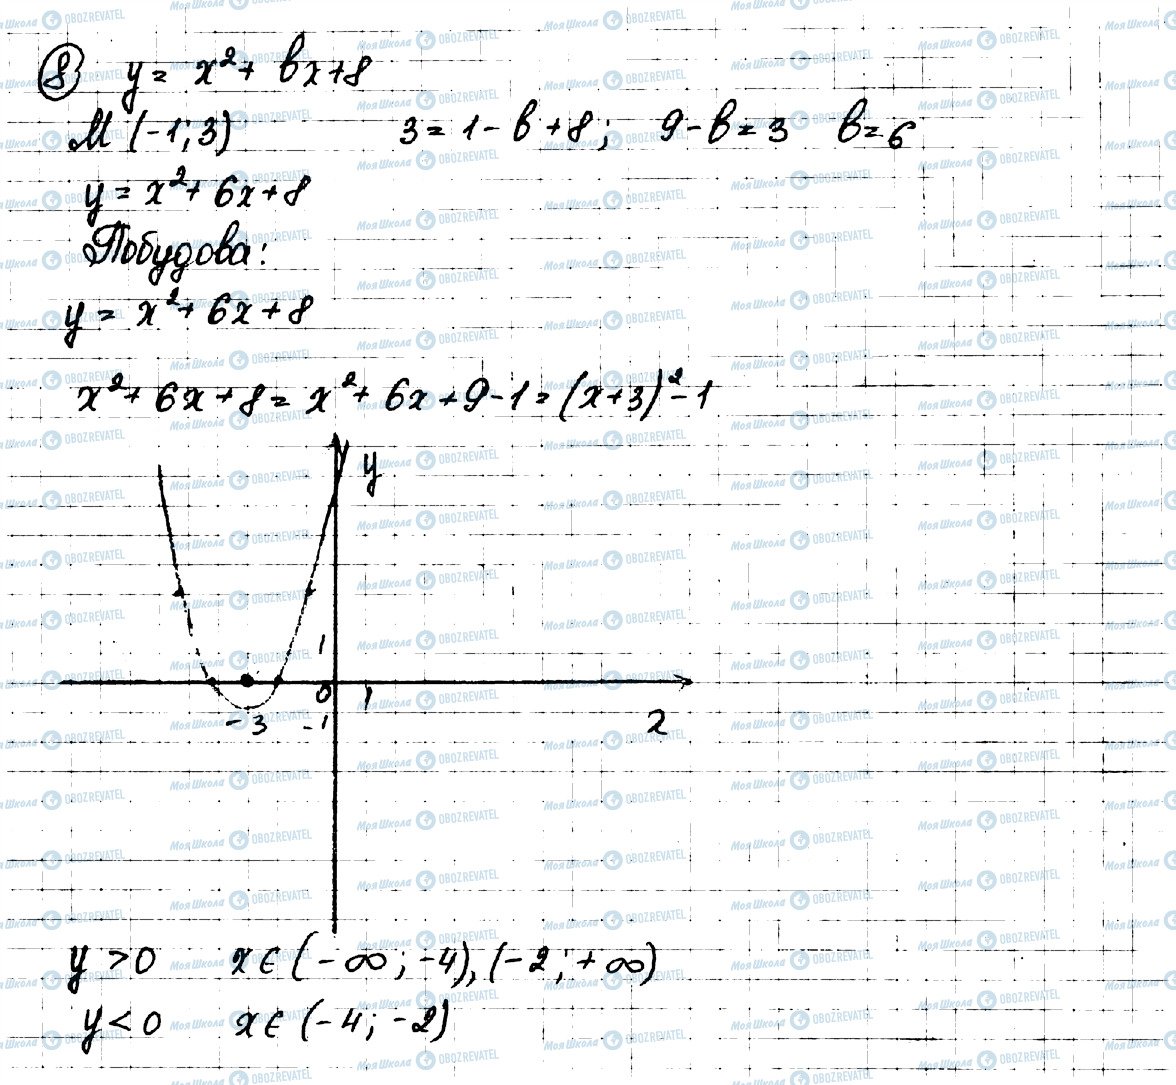 8) y = x² + bx + 8
M (-1; 3) 3 = 1 - b + 8; 9 - b = 3 b = 6
y = x² + 6x + 8
Побудова:
y = x² + 6x + 8
x² + 6x + 8 = x² + 6x + 9 - 1 = (x + 3)² - 1
y
1
0 1
-3 -1
x
y > 0 x ∈ (-∞; -4), (-2; +∞)
y < 0 x ∈ (-4; -2)
Моя Школа OBOZREVATEL